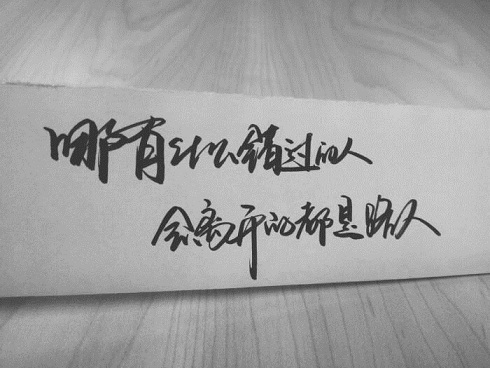 哪有什么错过的人
会离开的都是路人